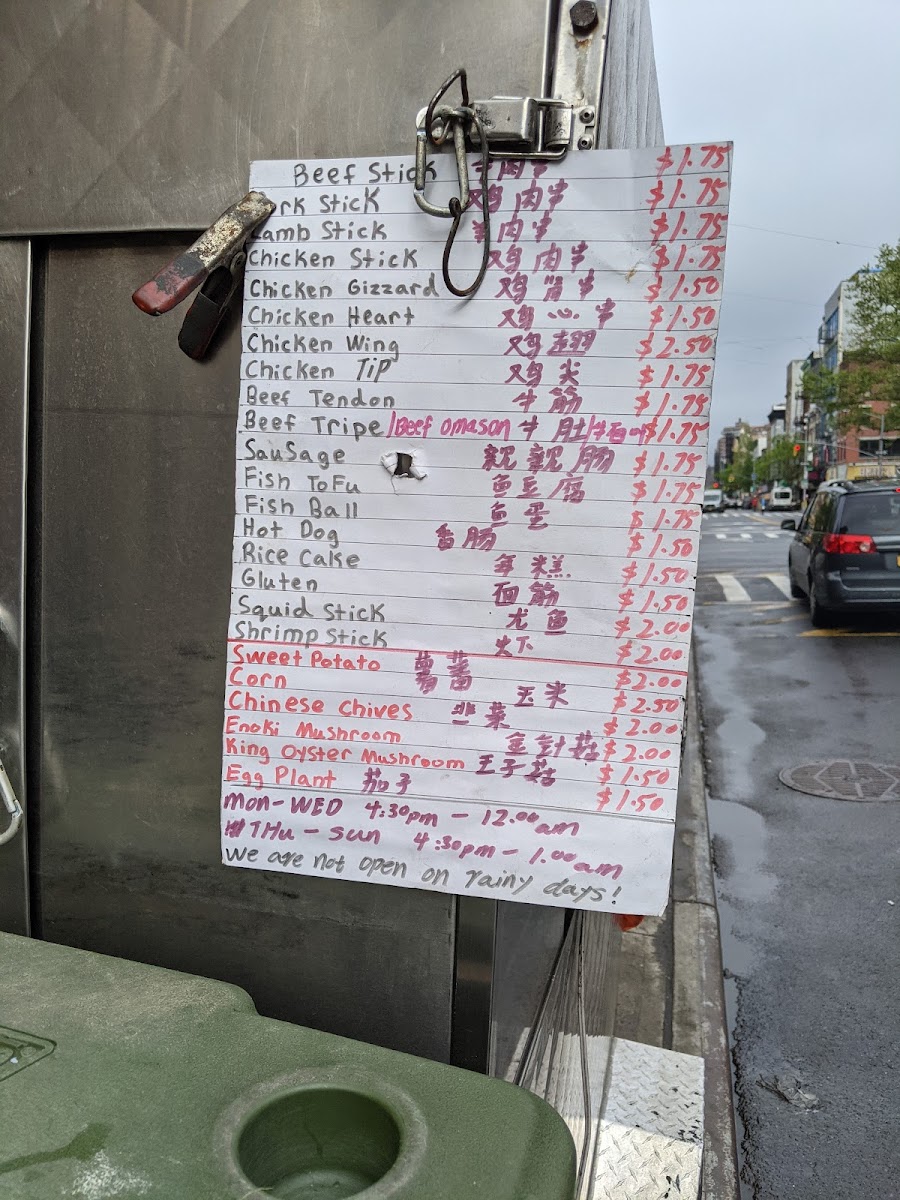 Beef Stick 肉串 $1.75
Stick 肉串 $1.75
Lamb Stick 羊肉串 $1.75
Chicken Stick 鸡肉串 $1.75
Chicken Gizzard 鸡肾串 $1.50
Chicken Heart 鸡心串 $1.50
Chicken Wing 鸡翅 $2.50
Chicken Tip 鸡尖 $1.75
Beef Tendon 牛筋 $1.75
Beef Tripe/Beef omason 牛肚/牛百叶 $1.75
Sausage 亲亲肠 $1.75
Fish ToFu 鱼豆腐 $1.75
Fish Ball 鱼蛋 $1.75
Hot Dog 香肠 $1.50
Rice Cake 年糕 $1.50
Gluten 面筋 $1.50
Squid Stick 尤鱼 $2.00
Shrimp Stick 虾 $2.00
Sweet Potato $2.00
Corn 玉米 $2.50
Chinese Chives 韭菜 $2.00
Enoki Mushroom 金針菇 $2.00
King Oyster Mushroom 王子菇 $1.50
Egg Plant 茄子 $1.50
Mon-WED 4:30pm - 12.00am
THu - Sun 4:30pm - 1.00am
We are not open on rainy days!